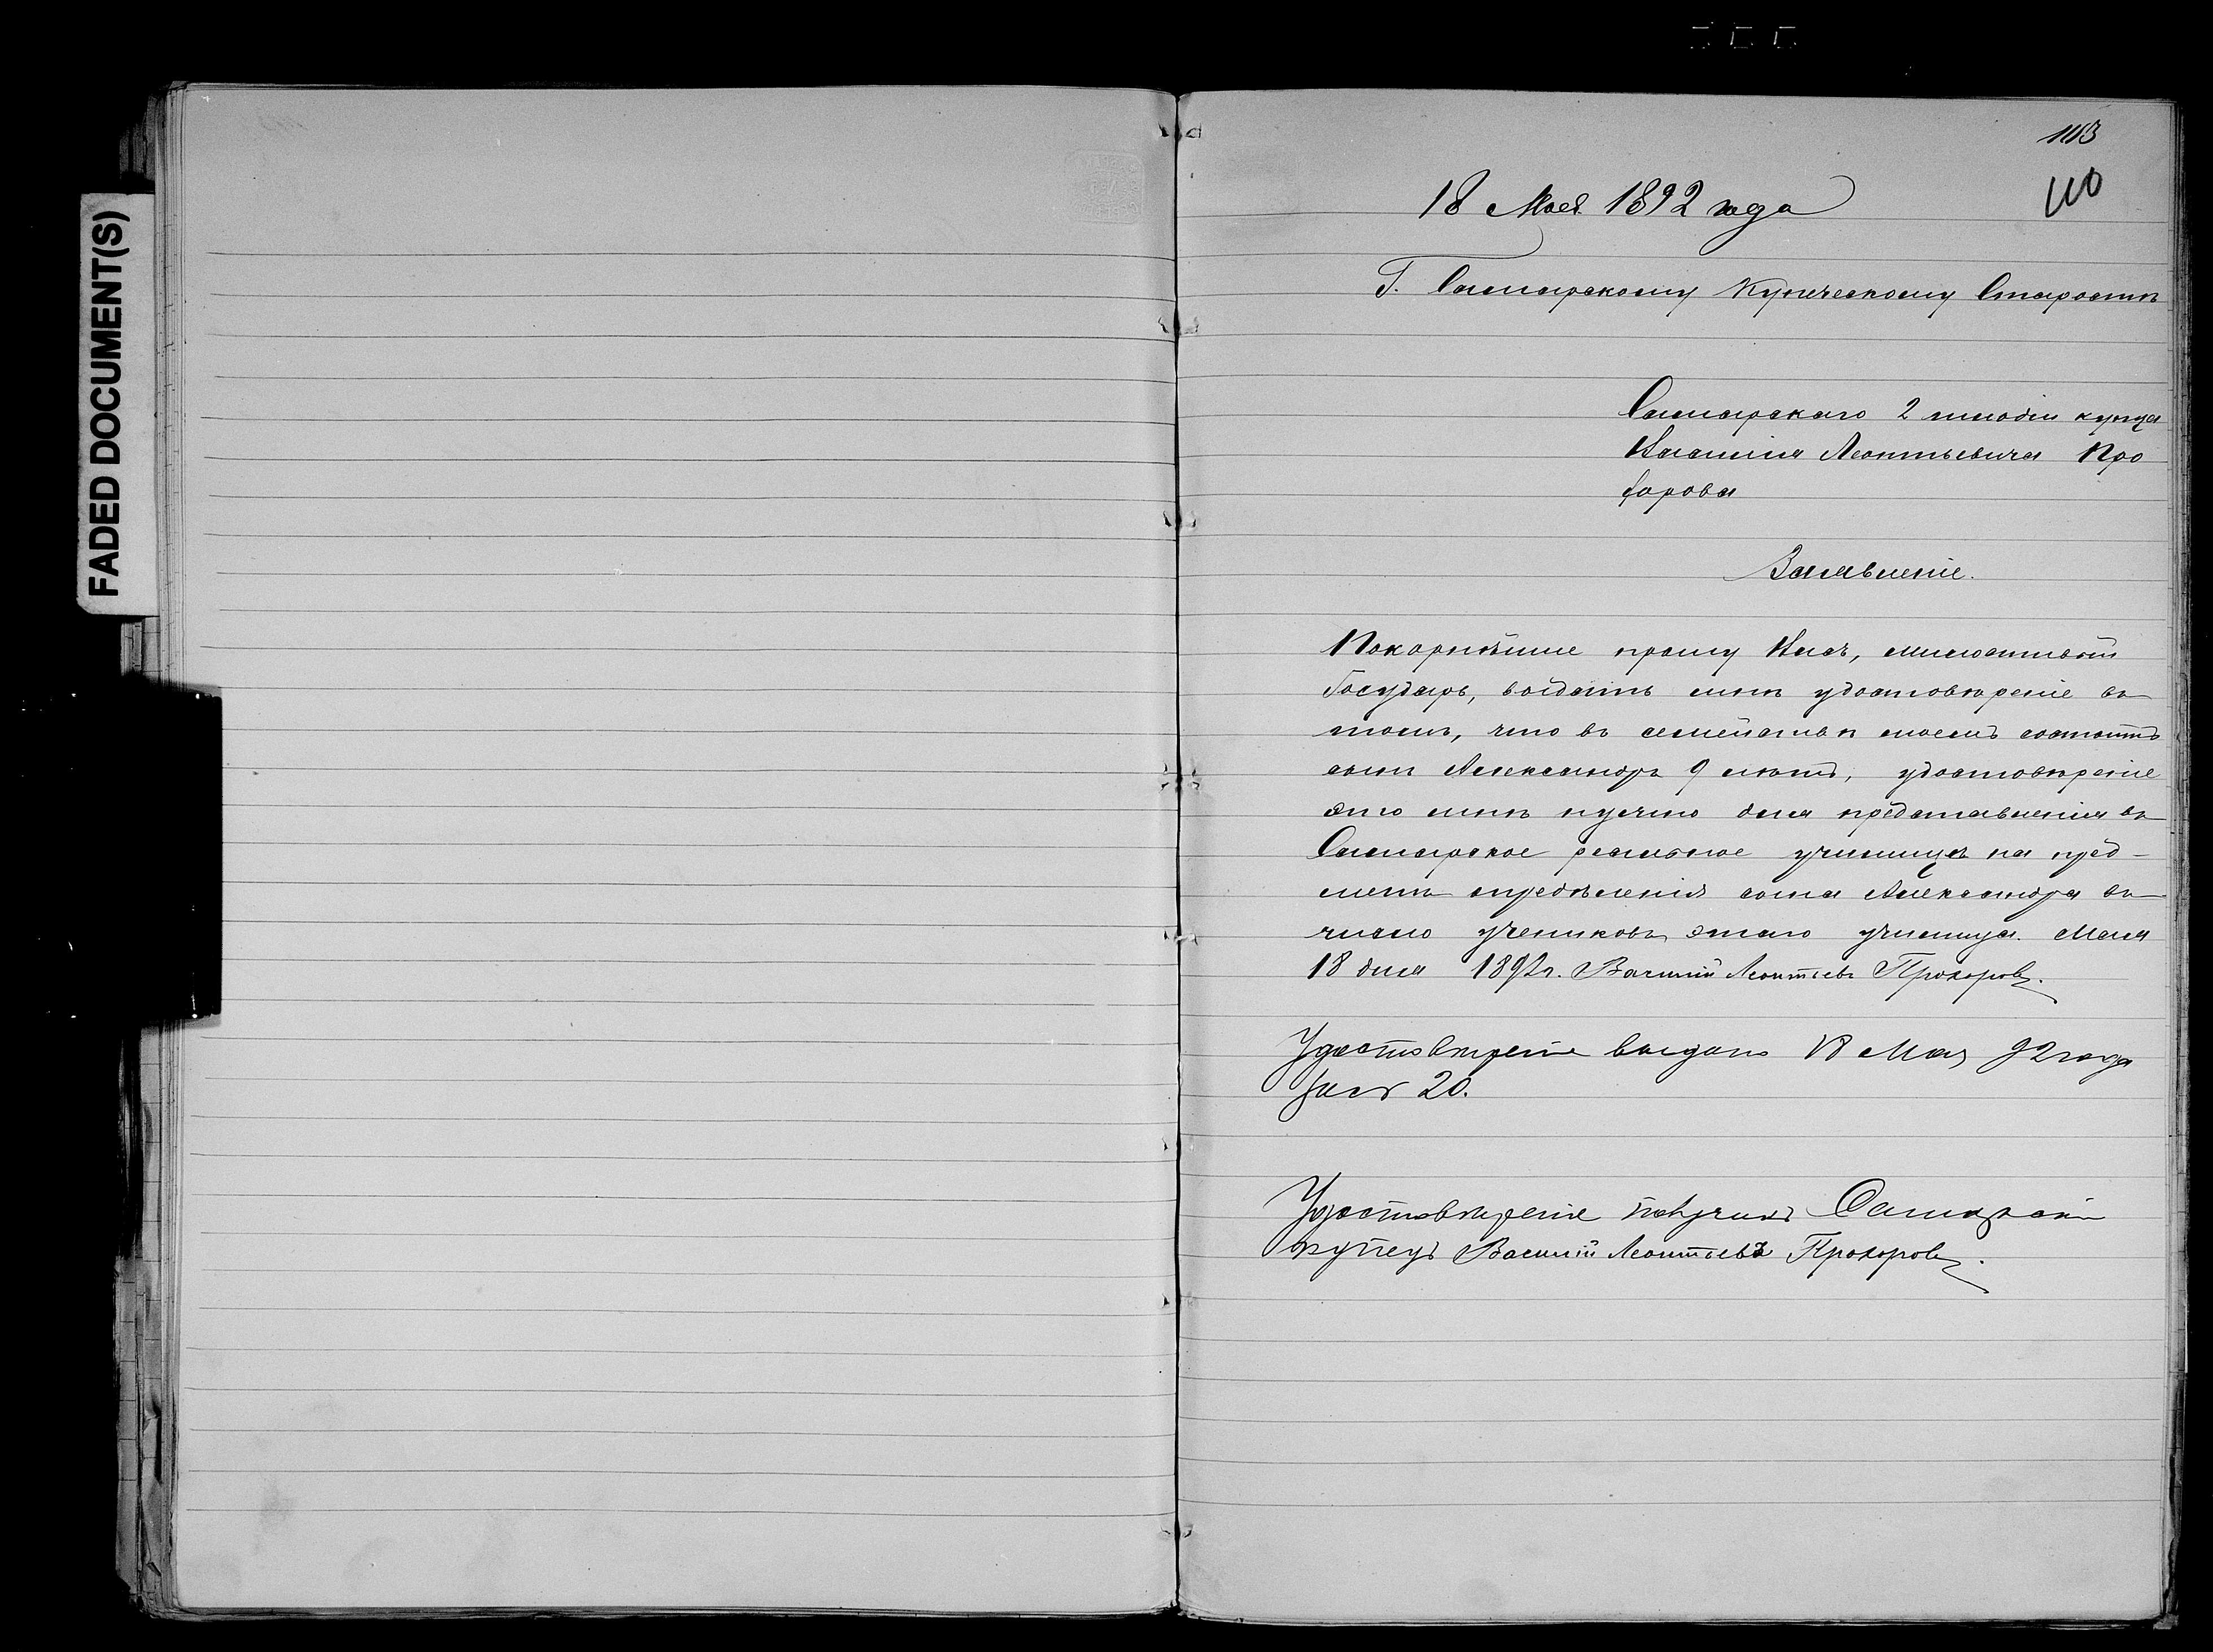 FADED DOCUMENT(S)
113
110
18 Мая 1892 года
Г. Самарскому Купеческому Старостѣ
Самарскаго 2 гильдіи купца
Василія Леонтьевича Про
хорова
Заявленіе.
Покорнѣйше прошу Васъ, милостивый
Государь, выдать мнѣ удостовѣреніе въ
томъ, что въ семействѣ моемъ состоитъ
сынъ Александръ 9 лѣтъ, удостовѣреніе
это мнѣ нужно для представленія въ
Самарское реальное училище на пред-
метъ опредѣленія сына Александра въ
число учениковъ этаго училища. Мая
18 дня 1892 г. Василій Леонтьевъ Прохоровъ.
Удостовѣреніе выдано 18 Мая 92 года
за № 20.
Удостовѣреніе получилъ Самарскій
купецъ Василій Леонтьевъ Прохоровъ.